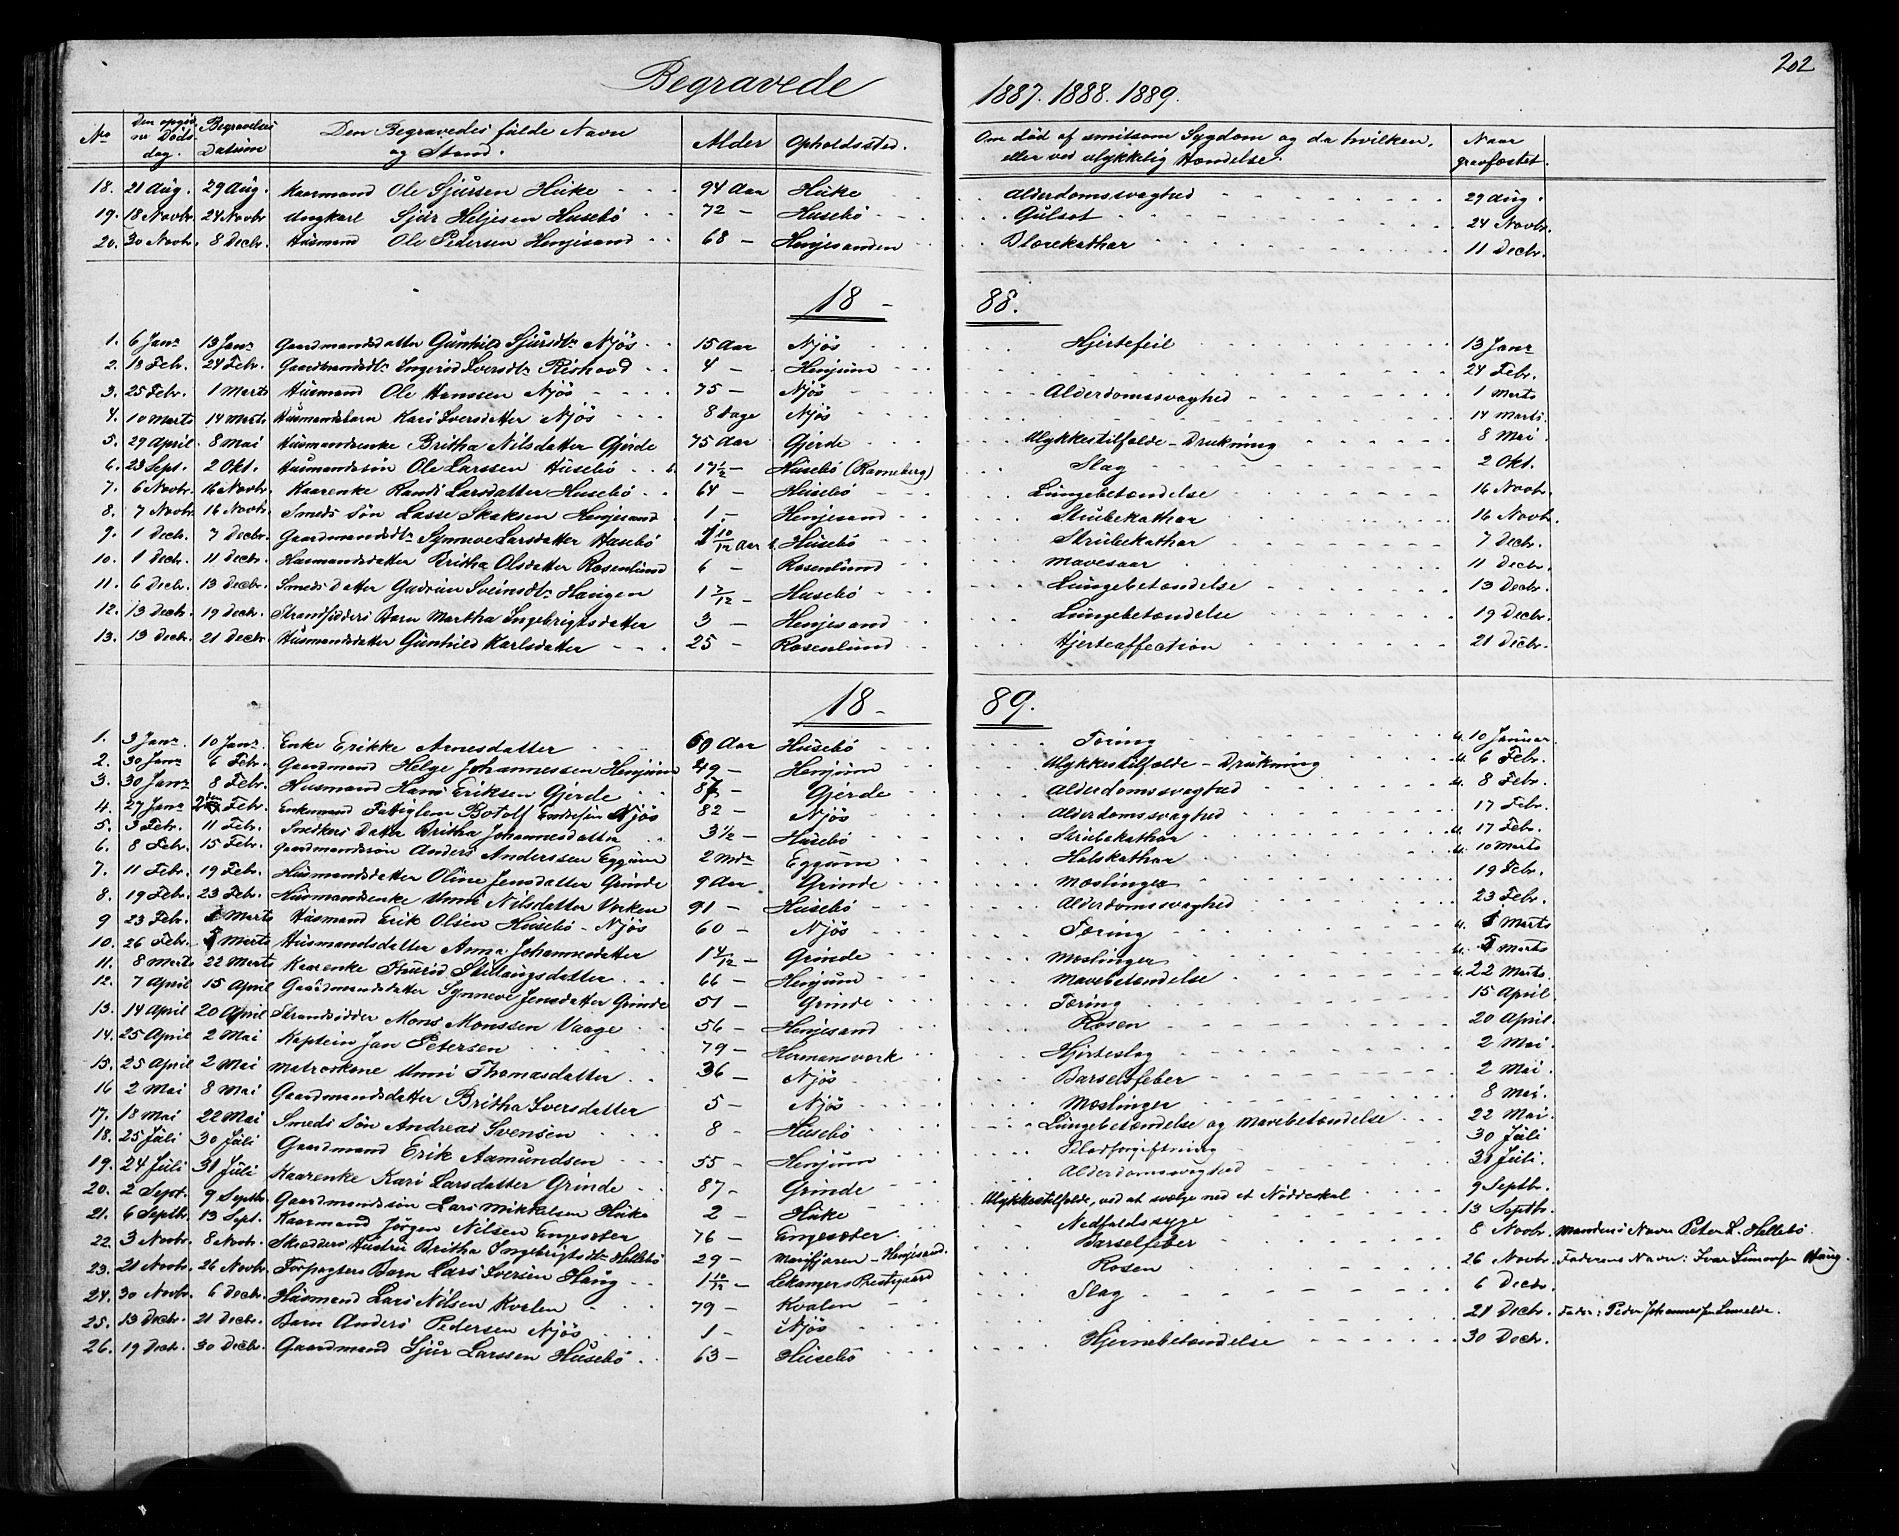 202
Begravede 1887. 1888. 1889.
No Den opgivne Dødsdag. Begravelses Datum Den Begravedes fulde Navn og Stand. Alder Opholdssted. Om död af smitsom Sygdom og da hvilken, eller ved ulykkelig Hændelse. Naar gravfæstet.
18. 21 Aug. 29 Aug. Kaarmand Ole Sjursen Huke 94 Aar Huke Alderdomssvaghed 29 Aug.
19. 18 Novbr. 24 Novbr. Ungkarl Sjur Heljesen Husebö 72 - Husebö Gulsot 24 Novbr.
20. 30 Novbr. 8 Decbr. Husmand Ole Pedersen Henjesand 68 - Henjesanden Blærekathar 11 Decbr.
18 - 88.
1. 6 Janr 13 Janr Gaardmandsdatter Gunhild Sjursdtr Njös 15 Aar Njös Hjertefeil 13 Janr
2. 18 Febr. 24 Febr. Gaardmandsdtr Ingerid Iversdtr Rishovd 4 - Henjum 24 Febr.
3. 25 Febr. 1 Marts Husmand Ole Hanssen Njös 75 - Njös Alderdomssvaghed 1 Marts
4. 10 Marts 14 Marts Husmandsbarn Kari Iversdatter Njös 8 Dage Njös 14 Marts
5. 29 April 8 Mai Husmandsenke Britha Nilsdatter Gjerde 75 Aar Gjerde Ulykkestilfælde - Drukning 8 Mai
6. 23 Sept. 2 Okt. Husmandssön Ole Larssen Husebö 17 1/2 - Husebö (Ramneberg) Slag 2 Okt.
7. 6 Novbr. 16 Novbr. Kaarenke Randi Larsdatter Husebö 64 - Husebö Lungebetændelse 16 Novbr.
8. 7 Novbr. 16 Novbr. Smeds Sön Lasse Skaksen Henjesand 1 - Henjesand Strubekathar 16 Novbr.
9. 1 Decbr. 7 Decbr. Gaardmandsdtr Synneve Larsdatter Husebö 10/12 Aar Husebö Strubekathar 7 Decbr.
10. 1 Decbr. 11 Decbr. Husmandsdatter Britha Olsdatter Rosenlund 6 - Rosenlund Mavesaar 11 Decbr.
11. 6 Decbr. 13 Decbr. Smeds Datter Gudrun Sveinsdtr Haugen 1 7/12 - Husebö Lungebetændelse 13 Decbr.
12. 13 Decbr. 19 Decbr. Strandsidders Barn Martha Ingebrigtsdatter 3 - Henjesand Lungebetændelse 19 Decbr.
13. 13 Decbr. 21 Decbr. Husmandsdatter Gunhild Karlsdatter 25 - Rosenlund Hjerteaffection 21 Decbr.
18 - 89.
1. 3 Janr 10 Janr. Enke Erikke Arnesdatter 69 Aar Husebö Tæring 10 Januar
2. 30 Janr 6 Febr. Gaardmand Helge Johannessen Henjum 49 - Henjum Ulykkestilfælde - Drukning 6 Febr.
3. 30 Janr 8 Febr. Husmand Hans Eriksen Gjerde 87 - Gjerde Alderdomssvaghed 8 Febr.
4. 27 Janr Febr. Enkemand Fattiglem Botolf Endresen Njös 82 - Njös Alderdomssvaghed 17 Febr.
5. 3 Febr. 11 Febr. Snedkers Datter Britha Johannesdatter 3 1/2 - Husebö Strubekathar 17 Febr.
6. 8 Febr. 15 Febr. Gaardmandssön Anders Anderssen Eggum 2 Mdr Eggum Halskathar 10 Marts
7. 11 Febr. 19 Febr. Husmandsdatter Oline Jensdatter Grinde 9 Aar Grinde Mæslinger 19 Febr.
8. 19 Febr. 23 Febr. Husmandsenke Unni Nilsdatter Verken 91 - Husebö Alderdomssvaghed 23 Febr.
9 23 Febr. Marts Husmand Erik Olsen Husebö - Njös 60 - Njös Tæring Marts
10. 26 Febr. Marts Husmandsdatter Anna Johannesdatter 1 4/12 - Grinde Mæslinger Marts
11. 8 Marts 22 Marts Kaarenke Thurid Skilaugsdatter 66 - Henjum Mavebetændelse 22 Marts.
12. 7 April 15 April Gaardmandsdatter Synneve Jensdatter Grinde 51 - Grinde Tæring 15 April
13. 14 April 20 April Strandsidder Mons Monssen Vaage 56 - Henjesand Rosen 20 April
14. 25 April 2 Mai Kaptein Jan Petersen 79 - Hermansverk Hjerteslag 2 Mai
15. 25 April 2 Mai Matroskone Unni Thomasdatter 36 - Njös Barselsfeber 2 Mai.
16 2 Mai 8 Mai Gaardmandsdatter Britha Iversdatter 5 - Njös Mæslinger 8 Mai.
17. 18 Mai 22 Mai Smeds Sön Andreas Svensen 8 - Husebö Lungebetændelse og Mavebetændelse 22 Mai.
18. 25 Juli 30 Juli Gaardmand Erik Aamundsen 55 - Henjum Blodforgiftning 30 Juli
19. 24 Juli 31 Juli Kaarenke Kari Larsdatter Grinde 87 - Grinde Alderdomssvaghed 31 Juli.
20. 2 Sept. 9 Septbr. Gaardmandssön Lars Mikkelsen Huke 2 - Huke Ulykkestilfælde, ved at svælge ned et Nöddeskal 9 Septbr.
21. 6 Septbr. 13 Sept. Kaarmand Jörgen Nilsen Engesæter 76 - Engesæter Nedfaldssyge 13 Septbr.
22. 3 Novbr. 8 Novbr. Skrædders Hustru Britha Ingebrigtsdtr Hellebö 29 - Maifjæren - Henjesand. Barselfeber 8 Novbr. Mandens Navn Peter L. Hellebö
23. 21 Novbr. 26 Novbr. Forpagters Barn Lars Iversen Haug 1 10/12 - Lekangers Prestgaard Rosen 26 Novbr. Faderens Navn: Ivar Simonsen Haug.
24. 30 Novbr. 6 Decbr. Husmand Lars Nilsen Kvalen 79 - Kvalen Slag 6 Decbr.
25. 13 Decbr. 21 Decbr. Barn Anders Pedersen Njös 1 - Njös 21 Decbr. Fader: Peder Johannessen
26. 19 Decbr. 30 Decbr. Gaardmand Sjur Larssen Husebö 63 - Husebö Hjernebetændelse 30 Decbr.